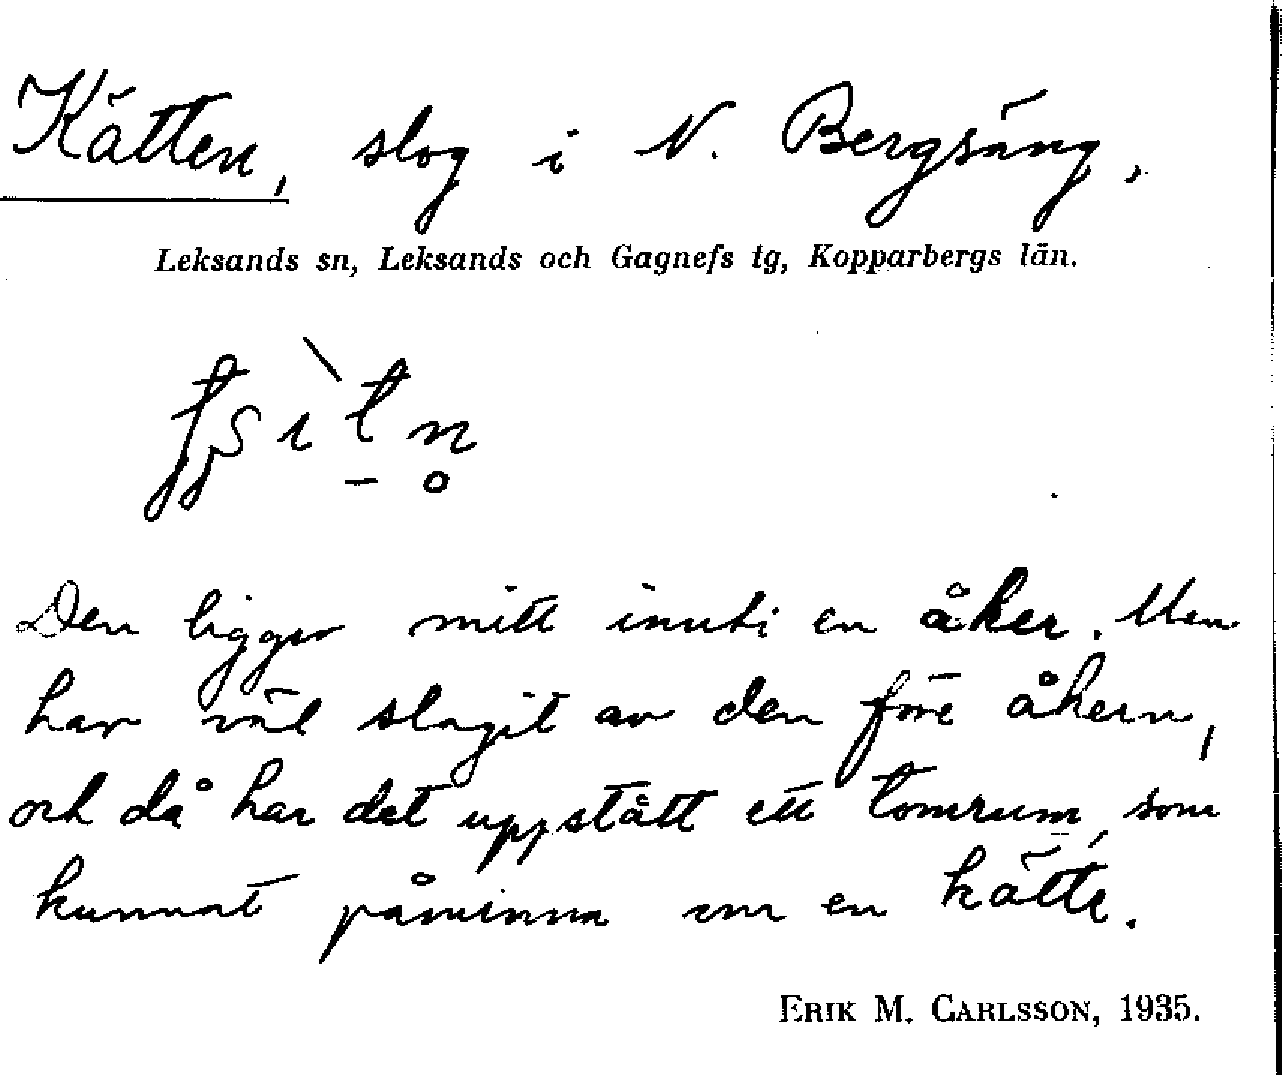 Kätten, slog i N. Bergsäng,
Leksands sn, Leksands och Gagnefs tg, Kopparbergs län.
Den ligger mitt inuti en åker. Men
har väl slagit av den före åkern,
och då har det uppstått ett tomrum, som
kunnat påminna om en kätte.
ERIK M. CARLSSON, 1935.